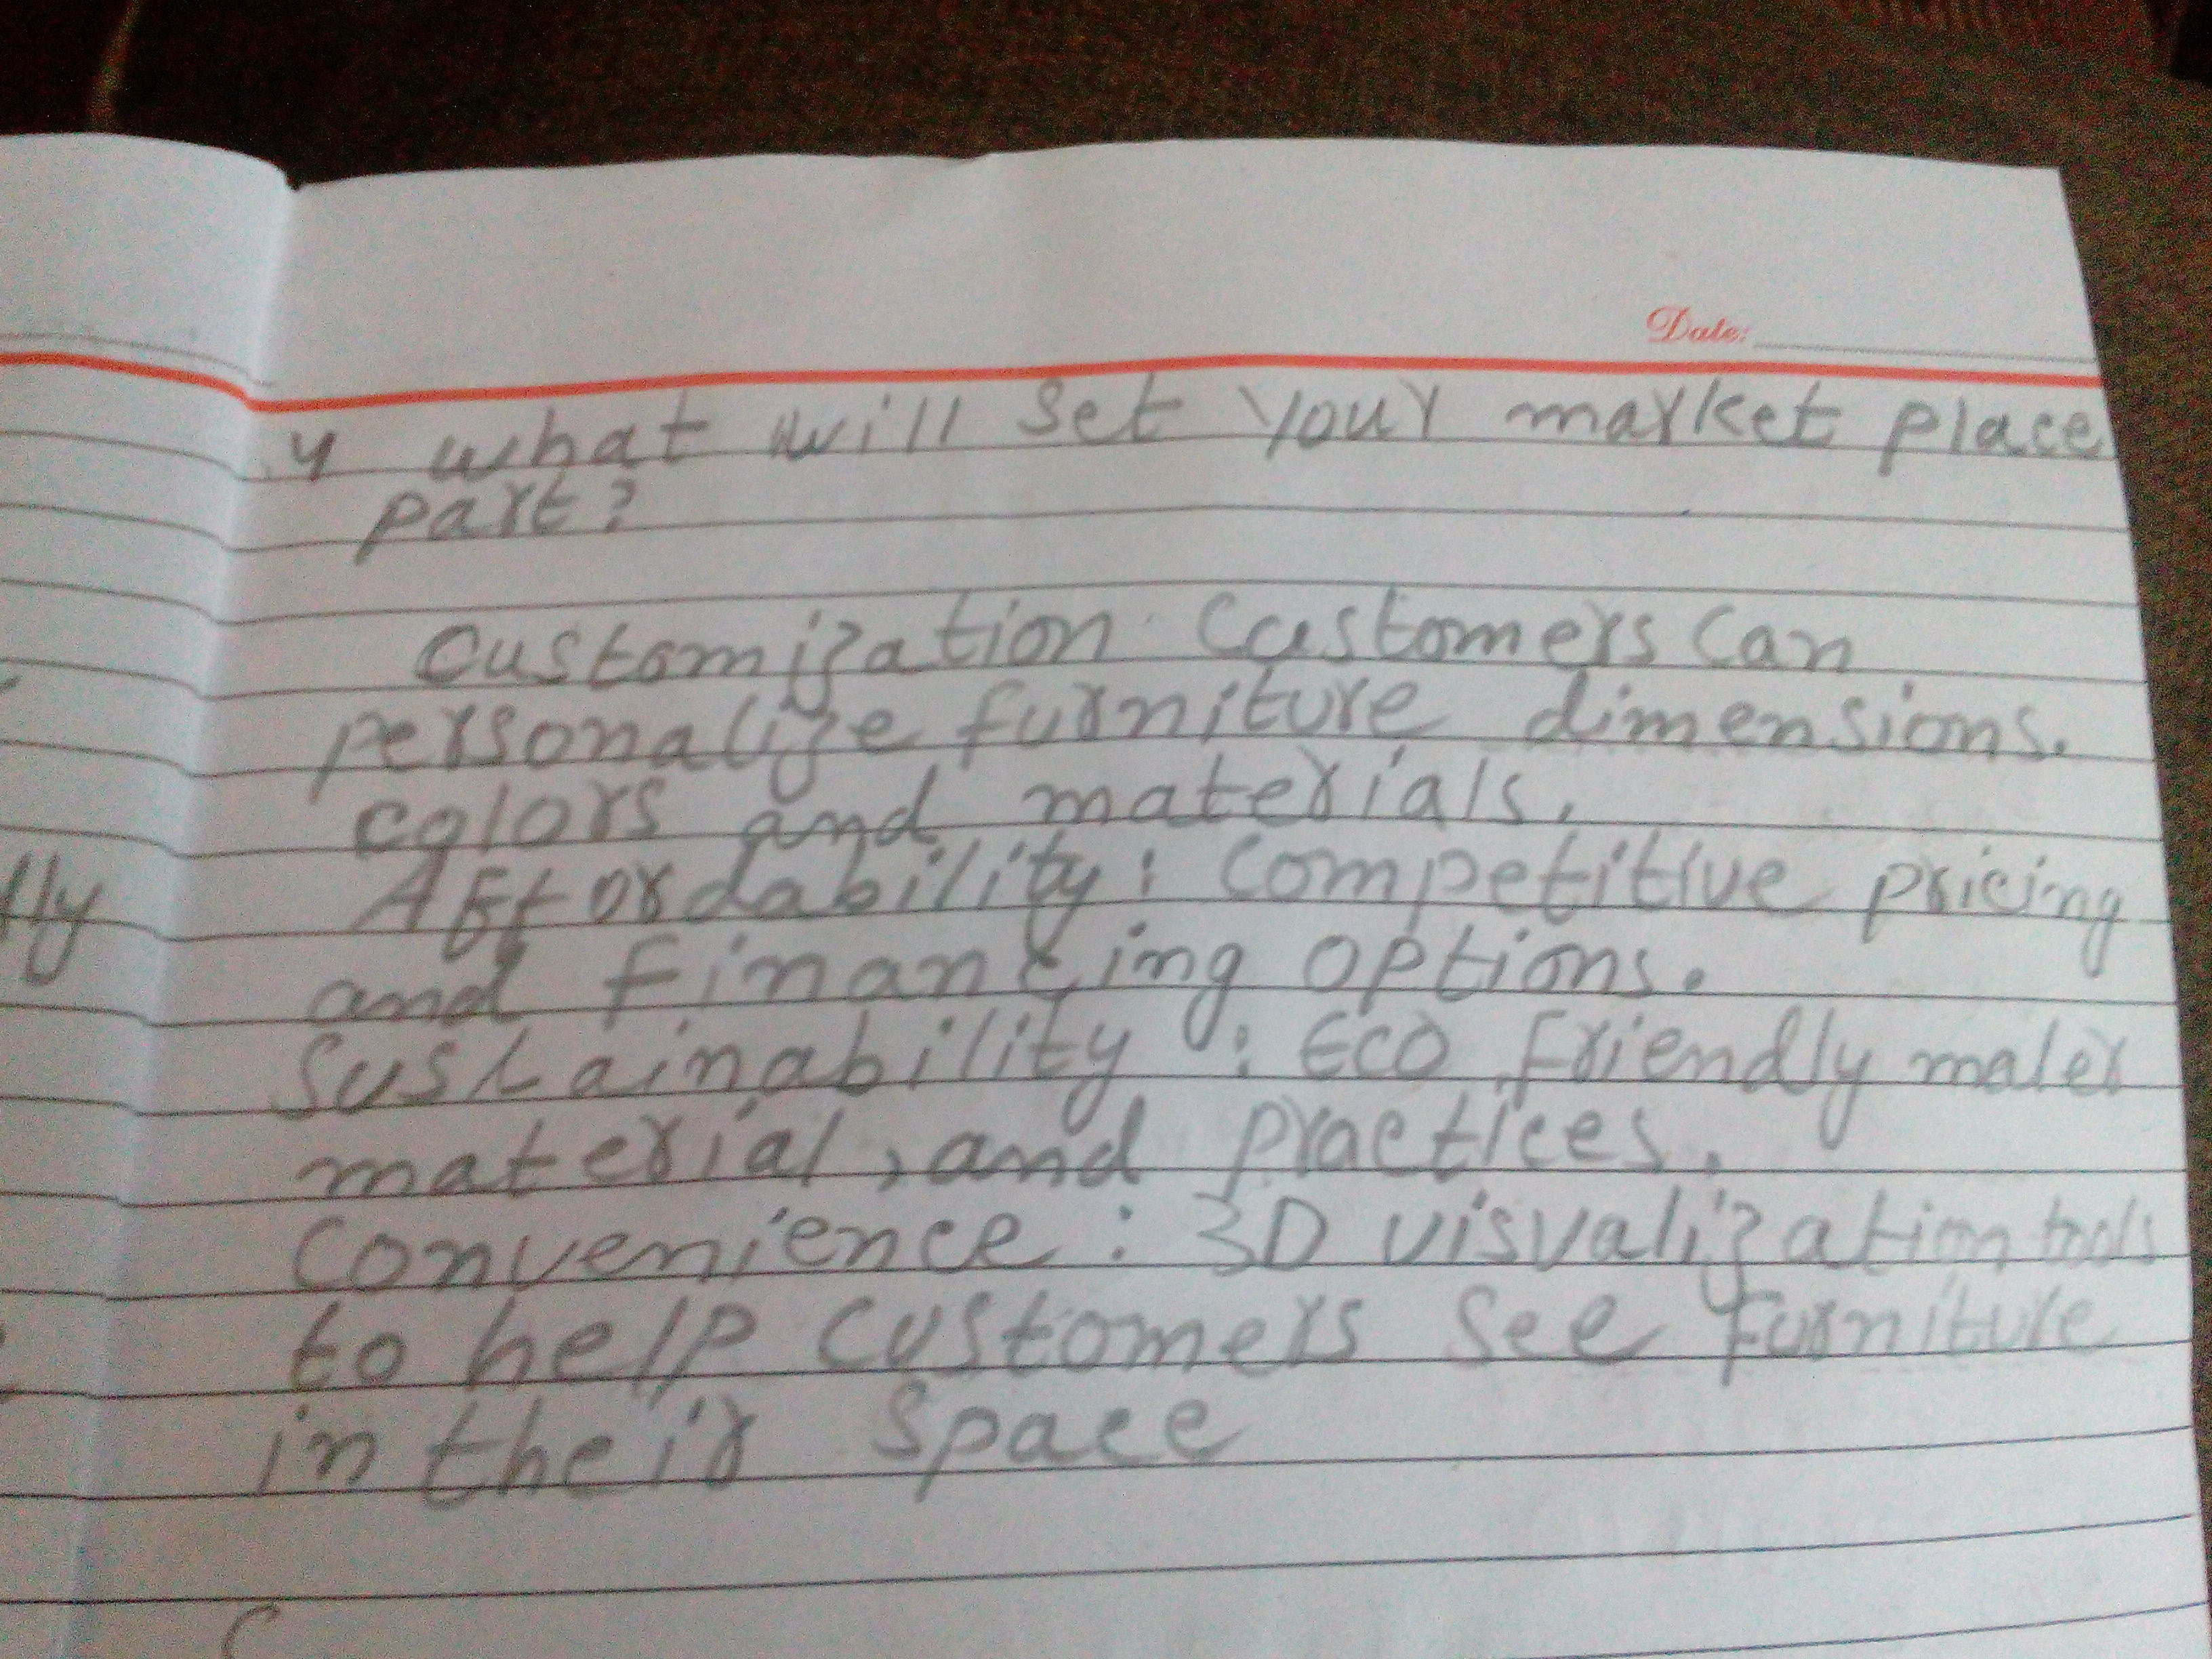 Date:
4 what will set your market place
part?
Customization Customers can
personalize furniture dimensions.
colors and materials.
Affordability: Competitive pricing
and financing options.
Sustainability: Eco friendly mater
material, and practices.
Convenience: 3D visualization tools
to help customers see furniture
in their space
lly